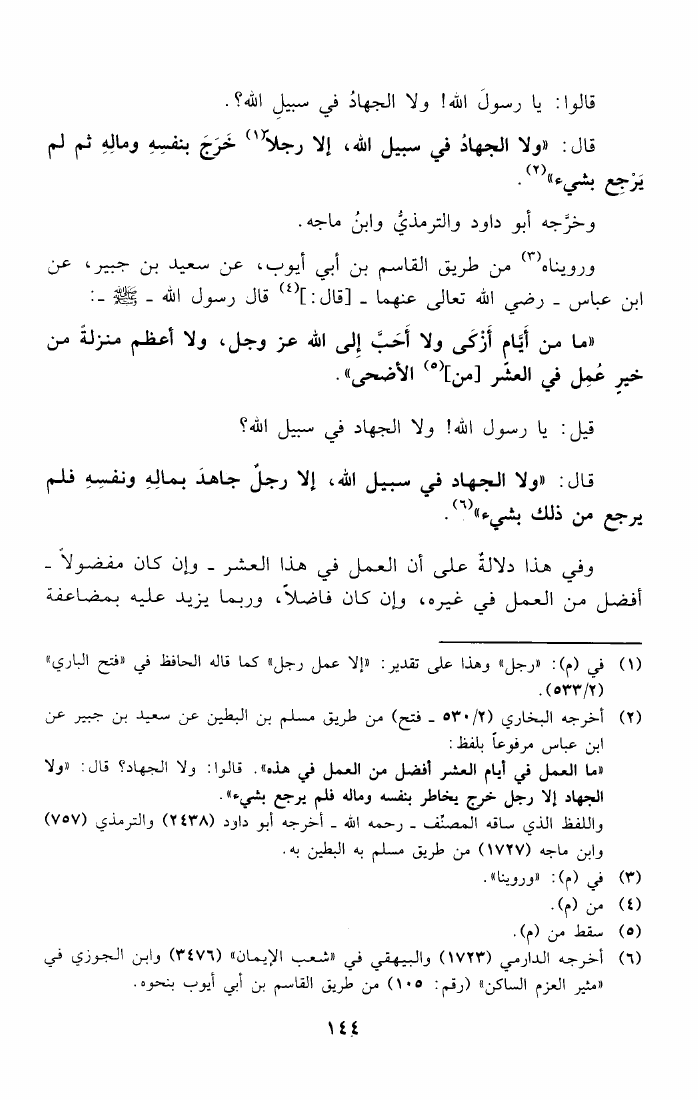 قالوا: يا رسولَ الله! ولا الجهادُ في سبيلِ الله؟.
قال: «ولا الجهادُ في سبيل الله، إلا رجلاً(١) خَرَجَ بنفسِهِ ومالِهِ ثم لم
يَرْجِع بشيء»(٢).
وخرَّجه أبو داود والترمذيُّ وابنُ ماجه.
ورويناه(٣) من طريق القاسم بن أبي أيوب، عن سعيد بن جبير، عن
ابن عباس ـ رضي الله تعالى عنهما ـ [قال:](٤) قال رسول الله ـ ﷺ ـ:
«ما من أَيَّام أَزْكَى ولا أَحَبَّ إِلى الله عز وجل، ولا أعظم منزلةً من
خيرِ عُمِل في العشر [من](٥) الأضحى».
قيل: يا رسول الله! ولا الجهاد في سبيل الله؟
قال: «ولا الجهاد في سبيل الله، إلا رجلٌ جاهدَ بمالِهِ ونفسِهِ فلم
يرجع من ذلك بشيء»(٦).
وفي هذا دلالةٌ على أن العمل في هذا العشر ـ وإن كان مفضولاً ـ
أفضل من العمل في غيره، وإن كان فاضلاً، وربما يزيد عليه بمضاعفة
(١) في (م): «رجل» وهذا على تقدير: «إلا عمل رجل» كما قاله الحافظ في «فتح الباري»
(٥٣٣/٢).
(٢) أخرجه البخاري (٥٣٠/٢ ـ فتح) من طريق مسلم بن البطين عن سعيد بن جبير عن
ابن عباس مرفوعاً بلفظ:
«ما العمل في أيام العشر أفضل من العمل في هذه». قالوا: ولا الجهاد؟ قال: «ولا
الجهاد إلا رجل خرج يخاطر بنفسه وماله فلم يرجع بشيء».
واللفظ الذي ساقه المصنِّف ـ رحمه الله ـ أخرجه أبو داود (٢٤٣٨) والترمذي (٧٥٧)
وابن ماجه (١٧٢٧) من طريق مسلم به البطين به.
(٣) في (م): «وروينا».
(٤) من (م).
(٥) سقط من (م).
(٦) أخرجه الدارمي (١٧٢٣) والبيهقي في «شعب الإيمان» (٣٤٧٦) وابن الجوزي في
«مثير العزم الساكن» (رقم: ١٠٥) من طريق القاسم بن أبي أيوب بنحوه.
١٤٤